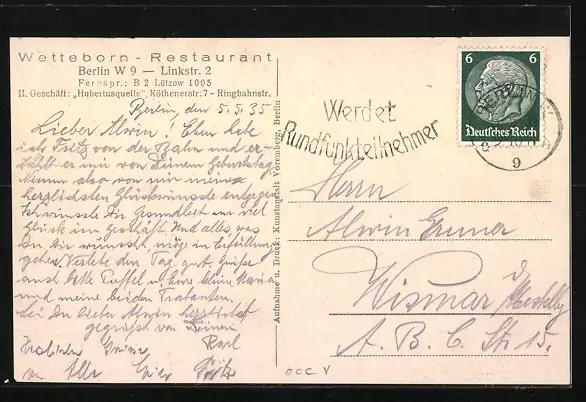 Wetteborn - Restaurant
Berlin W 9 — Linkstr. 2
Fernspr.: B 2 Lützow 1005
II. Geschäft: „Hubertusquelle", Köthenerstr. 7 - Ringbahnstr.
Berlin, den 5.5.35
Lieber Alwin! Eben habe
ich Fritz von der Bahn und er-
zählt er mir von Deinem Geburtstag.
Nimm also von mir meine
herzlichsten Glückwünsche entgegen.
Ich wünsche Dir Gesundheit und viel
Glück im Geschäft. Und alles was
Du Dir wünscht möge in Erfüllung
gehen. Verlebe den Tag gut. Grüße
auch bitte Puffel u. Eure kleine Maria
und meine beiden Trabanten.
Sei Du lieber Alwin herzlichst
gegrüßt von Deinem
Karl
Herzlichen Grüße
von Fritz
Aufnahme u. Druck: Kunstanstalt Voremberg, Berlin
Werdet
Rundfunkteilnehmer
6 6
Deutsches Reich
BERLIN
9
Herrn
Alwin Gruner
Wismar i/ Mecklbg
A. B. C. Str 15.
OCC V